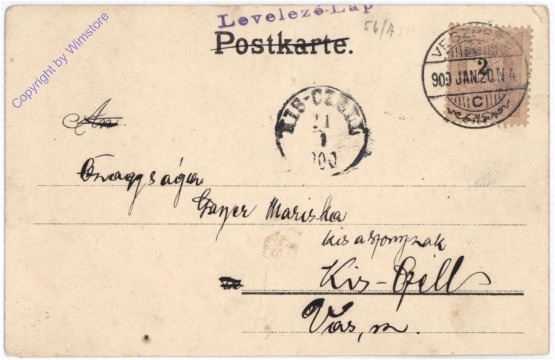 Levelező-Lap
56/A
Postkarte.
VESZPRÉM
2
900 JAN. 20 N 4
C
An
KIS-CZELL
21
1
900
Önagysága
Gayer Mariska
kisasszonynak
Kis-Czell
Vas, m.
Copyright by Wimstore